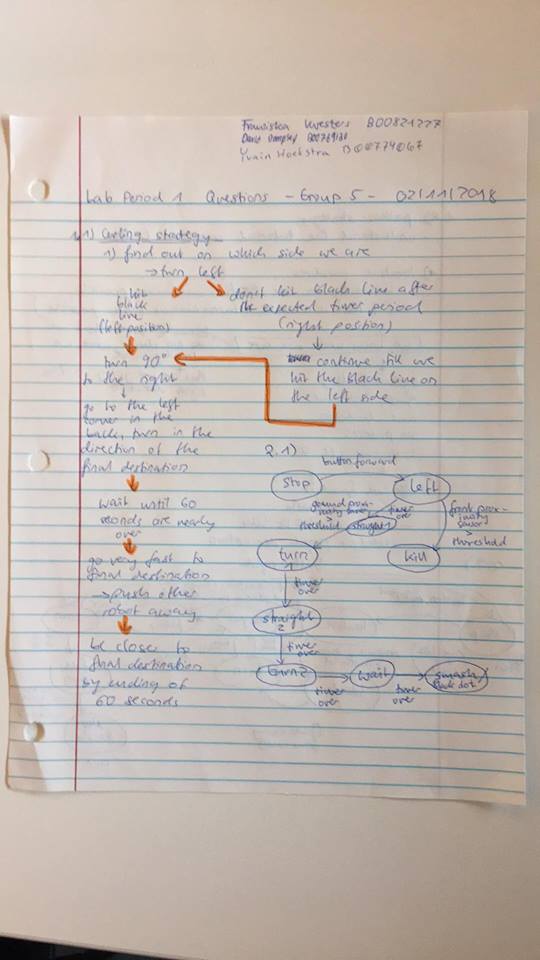 Franziska Kvesters B00821227
David B00769130
Yvain Hoekstra B00774067
Lab Period 1 Questions - Group 5 - 02/11/2018
1.1) Curling strategy
1) find out on which side we are
→ turn left
hit
black
line
(left position)
don't hit black line after
the expected timer period
(right position)
turn 90°
to the right
continue till we
hit the black line on
the left side
go to the left
corner in the
back, turn in the
direction of the
final destination
wait until 60
seconds are nearly
over
go very fast to
final destination
→ push other
robot away
be close to
final destination
by ending of
60 seconds
2.1)
button forward
stop
left
ground proxi-
mity sensor
> threshold
timer
over
straight
front prox-
imity
sensor
>
threshold
turn
kill
timer
over
straight
2
timer
over
turn 2
wait
smash/
black dot
timer
over
timer
over